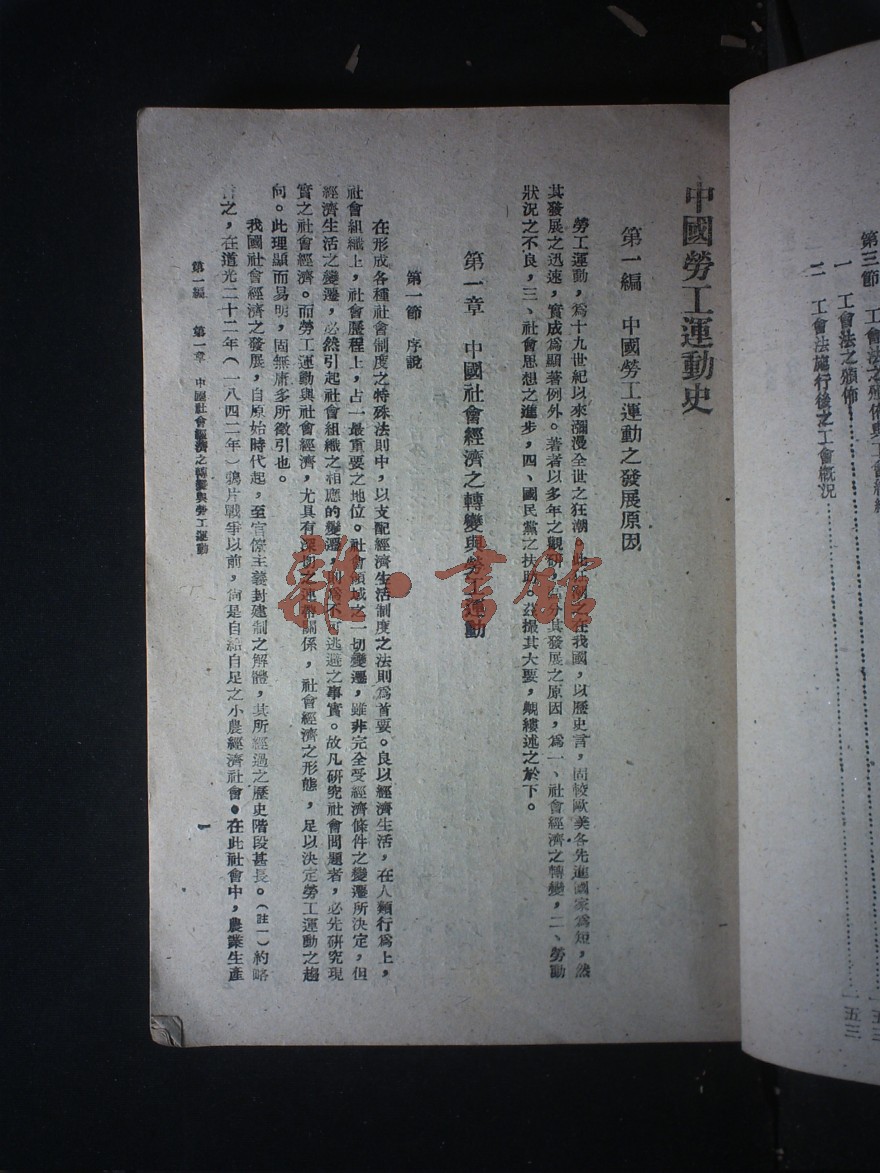 第三節　工會法之頒佈與工會組
一　工會法之頒佈……一五三
二　工會法施行後之工會概況……一五三
中國勞工運動史
第一編　中國勞工運動之發展原因
勞工運動，爲十九世紀以來瀰漫全世之狂潮，此狂潮之在我國，以歷史言，固較歐美各先進國家爲短，然
其發展之迅速，實成爲顯著例外。著者以多年之觀研，分其發展之原因，爲一、社會經濟之轉變，二、勞動
狀況之不良，三、社會思想之進步，四、國民黨之扶助。茲撮其大要，覼縷述之於下。
第一章　中國社會經濟之轉變與勞工運動
第一節　序說
在形成各種社會制度之特殊法則中，以支配經濟生活制度之法則爲首要。良以經濟生活，在人類行爲上，
社會組織上，社會歷程上，占一最重要之地位。社會領域之一切變遷，雖非完全受經濟條件之變遷所決定，但
經濟生活之變遷，必然引起社會組織之相應的變遷，則爲不可逃避之事實。故凡研究社會問題者，必先研究現
實之社會經濟。而勞工運動與社會經濟，尤具有深切之連帶關係，社會經濟之形態，足以決定勞工運動之趨
向。此理顯而易明，固無庸多所徵引也。
我國社會經濟之發展，自原始時代起，至官僚主義封建制之解體，其所經過之歷史階段甚長。（註一）約略
言之，在道光二十二年（一八四二年）鴉片戰爭以前，尙是自給自足之小農經濟社會。在此社會中，農業生產
第一編　第一章　中國社會經濟之轉變與勞工運動
一
雜·書館